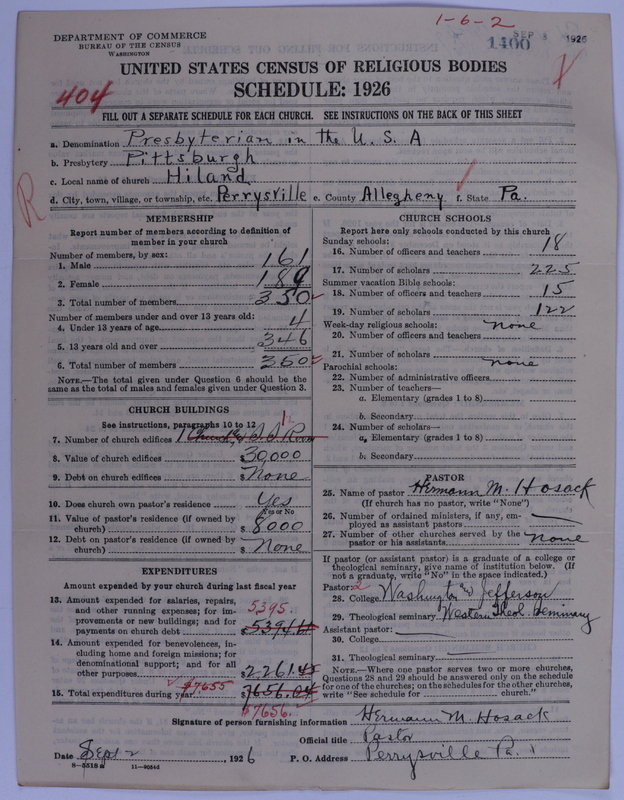 1-6-2
DEPARTMENT OF COMMERCE
BUREAU OF THE CENSUS
WASHINGTON
1400 SEP 3 1926
UNITED STATES CENSUS OF RELIGIOUS BODIES
SCHEDULE: 1926
404
FILL OUT A SEPARATE SCHEDULE FOR EACH CHURCH. SEE INSTRUCTIONS ON THE BACK OF THIS SHEET
a. Denomination Presbyterian in the U. S. A
b. Presbytery Pittsburgh
c. Local name of church Hiland
d. City, town, village, or township, etc. Perrysville e. County Allegheny f. State Pa.
R
MEMBERSHIP
Report number of members according to definition of member in your church
Number of members, by sex:
1. Male 161
2. Female 189
3. Total number of members 350
Number of members under and over 13 years old:
4. Under 13 years of age 4
5. 13 years old and over 346
6. Total number of members 350
NOTE.—The total given under Question 6 should be the same as the total of males and females given under Question 3.
CHURCH BUILDINGS
See instructions, paragraphs 10 to 12
7. Number of church edifices 1 Church & S. S. Room 1
8. Value of church edifices $ 30,000
9. Debt on church edifices $ None
10. Does church own pastor's residence Yes
Yes or No
11. Value of pastor's residence (if owned by church) $ 8000
12. Debt on pastor's residence (if owned by church) $ None
EXPENDITURES
Amount expended by your church during last fiscal year
13. Amount expended for salaries, repairs, and other running expenses; for improvements or new buildings; and for payments on church debt 5395. $ 5394.61
14. Amount expended for benevolences, including home and foreign missions; for denominational support; and for all other purposes $ 2261.45
15. Total expenditures during year $7655 7656.04
$7656.
CHURCH SCHOOLS
Report here only schools conducted by this church
Sunday schools:
16. Number of officers and teachers 18
17. Number of scholars 225
Summer vacation Bible schools:
18. Number of officers and teachers 15
19. Number of scholars 122
Week-day religious schools: none
20. Number of officers and teachers
21. Number of scholars
Parochial schools: none
22. Number of administrative officers
23. Number of teachers—
a. Elementary (grades 1 to 8)
b. Secondary
24. Number of scholars—
a. Elementary (grades 1 to 8)
b. Secondary
PASTOR
25. Name of pastor Hermann M. Hosack
(If church has no pastor, write "None")
26. Number of ordained ministers, if any, employed as assistant pastors
27. Number of other churches served by the pastor or his assistants none
If pastor (or assistant pastor) is a graduate of a college or theological seminary, give name of institution below. (If not a graduate, write "No" in the space indicated.)
Pastor: 2
28. College Washington & Jefferson
29. Theological seminary Western Theol. Seminary
Assistant pastor:
30. College
31. Theological seminary
NOTE.—Where one pastor serves two or more churches, Questions 28 and 29 should be answered only on the schedule for one of the churches; on the schedules for the other churches, write "See schedule for church."
Signature of person furnishing information Hermann M. Hosack
Official title Pastor
Date Sept 2, 1926 P. O. Address Perrysville Pa.
8-5518a 11-90546